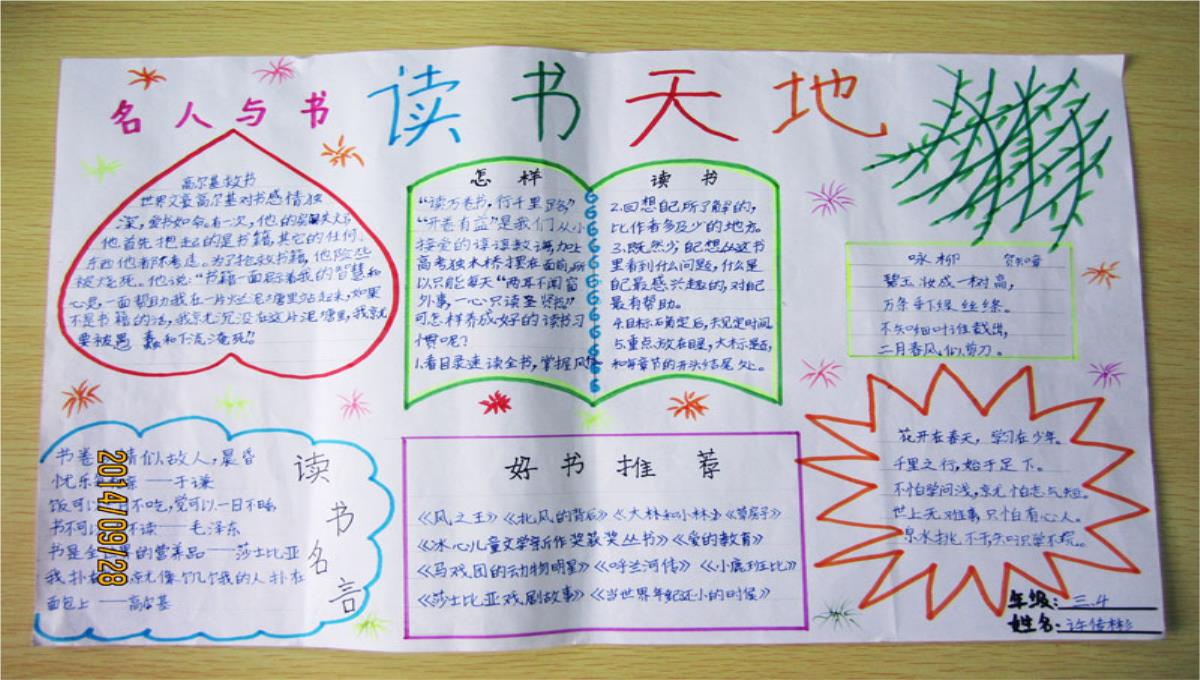 读书天地
名人与书
高尔基救书
世界文豪高尔基对书感情独
深,爱书如命。有一次,他的房间失火了
他首先抱起的是书籍,其它的任何
东西他都不考虑。为了抢救书籍,他险些
被烧死。他说:“书籍一面启示着我的智慧和
心灵,一面帮助我在一片烂泥塘里站起来,如果
不是书籍的话,我就沉没在这片泥塘里,我就
要被愚蠢和下流淹死”
怎样读书
“读万卷书,行千里路”
“开卷有益”是我们从小
接受的谆谆教诲加上
高考独木桥摆在面前,所
以只能每天“两耳不闻窗
外事,一心只读圣贤书”
可怎样养成好的读书习
惯呢?
1.看目录速读全书,掌握风格
2.回想自己所了解的,
比作者多及少的地方。
3.既然少自己想从这书
里看到什么问题,什么是
自己最感兴趣的,对自己
最有帮助。
4.目标石确定后,去见定时间
与重点放在目录,大标题,
和每章节的开头结尾处。
咏柳 贺知章
碧玉妆成一树高,
万条垂下绿丝绦。
不知细叶谁裁出,
二月春风似剪刀。
读书名言
书卷 情似故人,晨昏
忧乐 ——于谦
饭可以 不吃,觉可以一日不睡
书不可以 不读——毛泽东
书是全 的营养品——莎士比亚
我扑在 就像饥饿的人扑在
面包上——高尔基
2014/09/28
好书推荐
《风之王》《北风的背后》《大林和小林》《草房子》
《冰心儿童文学新作奖获奖丛书》《爱的教育》
《马戏团的动物明星》《呼兰河传》《小鹿班比》
《莎士比亚戏剧故事》《当世界年纪还小的时候》
花开在春天,学习在少年。
千里之行,始于足下。
不怕学问浅,就怕志气短。
世上无难事,只怕有心人。
泉水挑不干,知识学不完。
年级:三.4
姓名:许倍彬